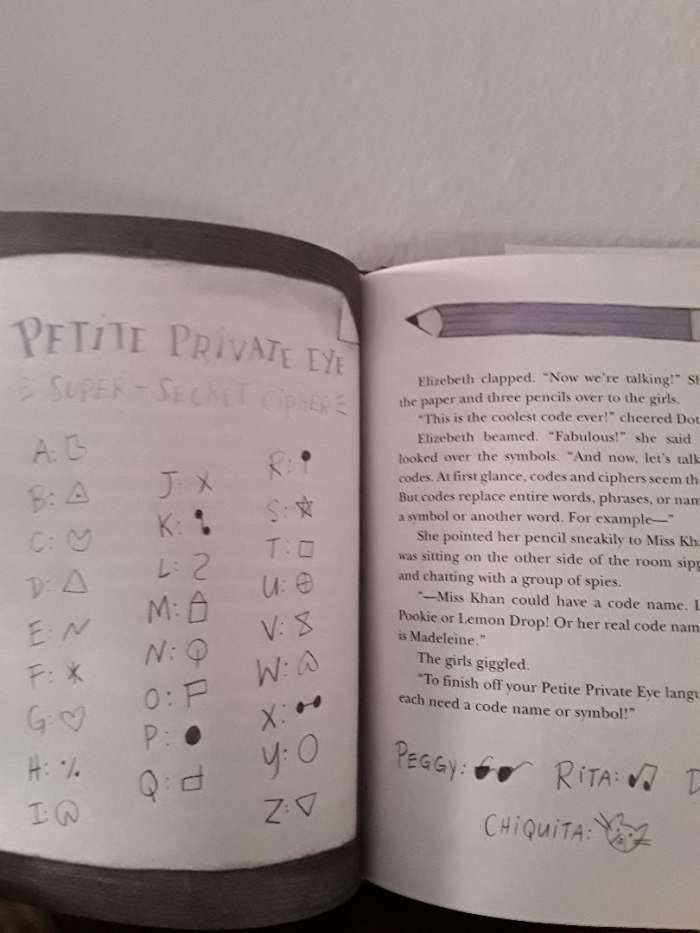 PETITE PRIVATE EYE
SUPER-SECRET CIPHER
A:
B:
C:
D:
E:
F:
G:
H:
I:
J:
K:
L:
M:
N:
O:
P:
Q:
R:
S:
T:
U:
V:
W:
X:
Y:
Z:
Elizebeth clapped. “Now we’re talking!”
the paper and three pencils over to the girls.
“This is the coolest code ever!” cheered Dot
Elizebeth beamed. “Fabulous!” she said
looked over the symbols. “And now, let’s talk
codes. At first glance, codes and ciphers seem
But codes replace entire words, phrases, or
a symbol or another word. For example—”
She pointed her pencil sneakily to Miss
was sitting on the other side of the room
and chatting with a group of spies.
“—Miss Khan could have a code name.
Pookie or Lemon Drop! Or her real code
is Madeleine.”
The girls giggled.
“To finish off your Petite Private Eye
each need a code name or symbol!”
PEGGY: RITA:
CHIQUITA: